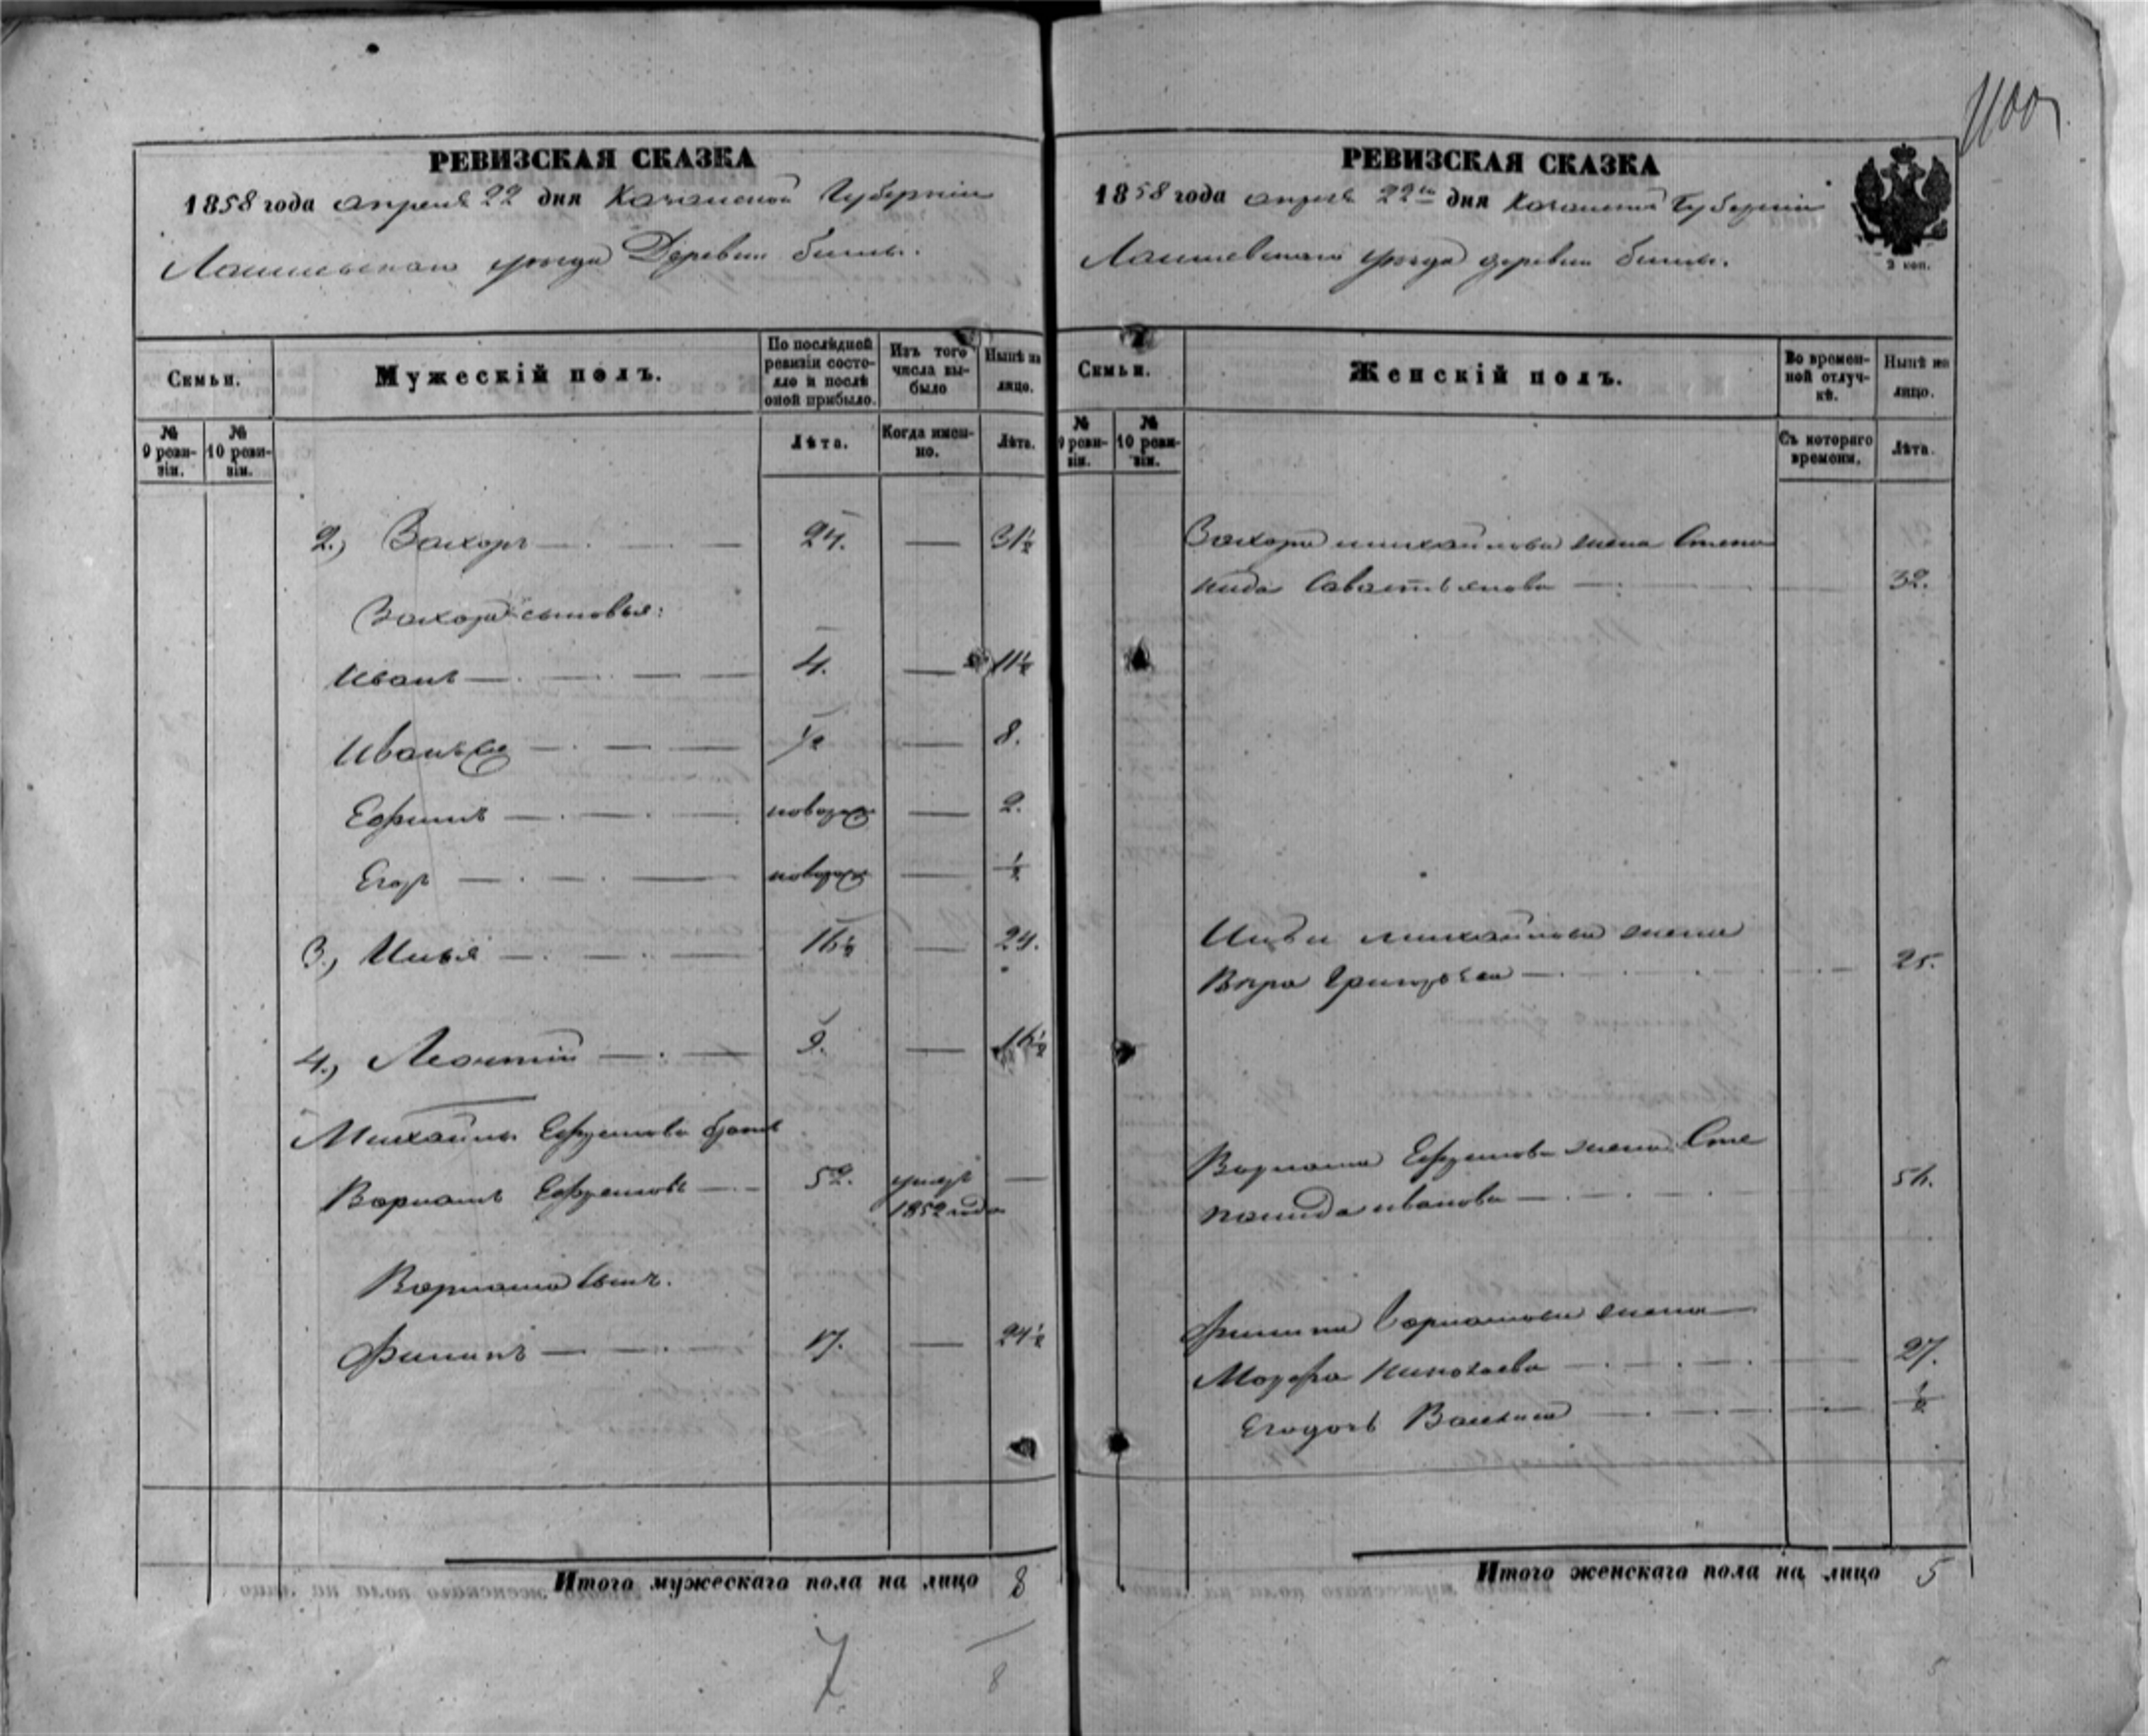 1100
РЕВИЗСКАЯ СКАЗКА
1858 года апреля 22 дня Казанской Губернiи
Лаишевскаго уѣзда Деревни
Семьи.
Мужескiй полъ.
По послѣдней ревизiи состояло и послѣ оной прибыло.
Изъ того числа выбыло
Нынѣ на лицо.
№ 9 ревизiи.
№ 10 ревизiи.
Лѣта.
Когда именно.
Лѣта.
2., Захаръ 24. 31½
Захара сыновья:
Иванъ 4. 11½
Иванъ же ½ 8.
Ефимъ новорож 2.
Егоръ новорож ½
3., Илья 16½ 24.
4., Леонтiй 9. 16½
Михайлы Ефремова братъ
Варламъ Ефремовъ 52. умеръ
1852 года
Варлама сынъ.
Филипъ 17. 24½
Итого мужескаго пола на лицо 8
7
8
РЕВИЗСКАЯ СКАЗКА
1858 года апреля 22го дня Казанской Губернiи
Лаишевскаго уѣзда деревни
2 коп.
Семьи.
Женскiй полъ.
Во временной отлучкѣ.
Нынѣ на лицо.
№ 9 ревизiи.
№ 10 ревизiи.
Съ котораго времени.
Лѣта.
Захара михайлова жена Степа
нида Савастьянова 32.
Ильи михайлова жена
Вѣра Григорьева 25.
Варлама Ефремова жена Сте
панида иванова 56.
Филипа Варламова жена
Марфа николаева 27.
Его дочь ½
Итого женскаго пола на лицо 5
5